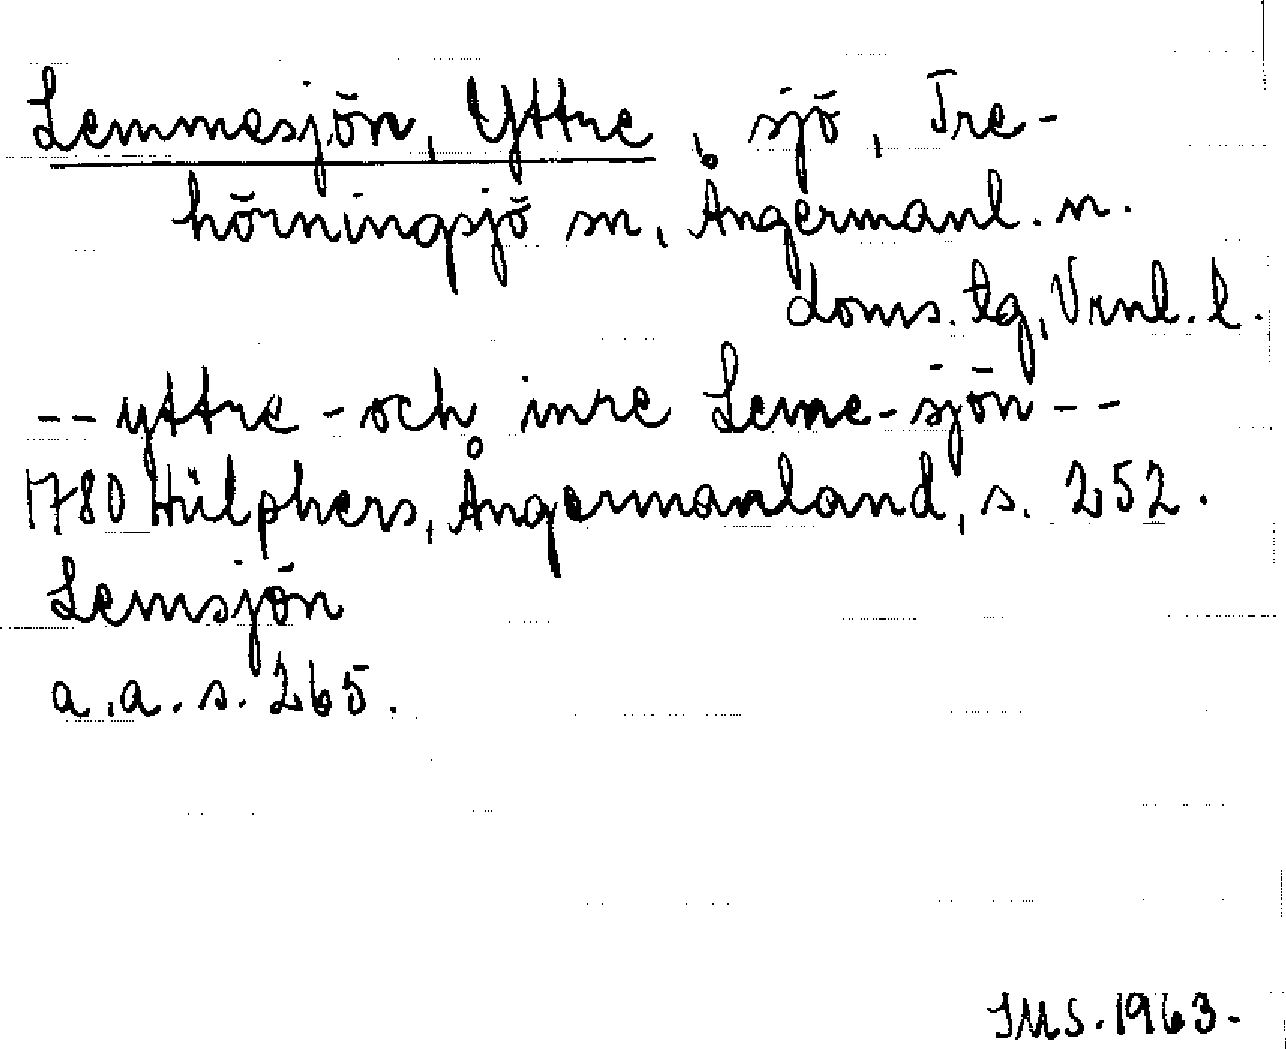 Lemmesjön, Yttre, sjö, Tre-
hörningsjö sn, Ångermanl. n.
doms. tg, Vrnl. l.
-- yttre - och inre Leme-sjön --
1780 Hülphers, Ångermanland, s. 252.
Lemsjön
a.a. s. 265.
IMS. 1963.